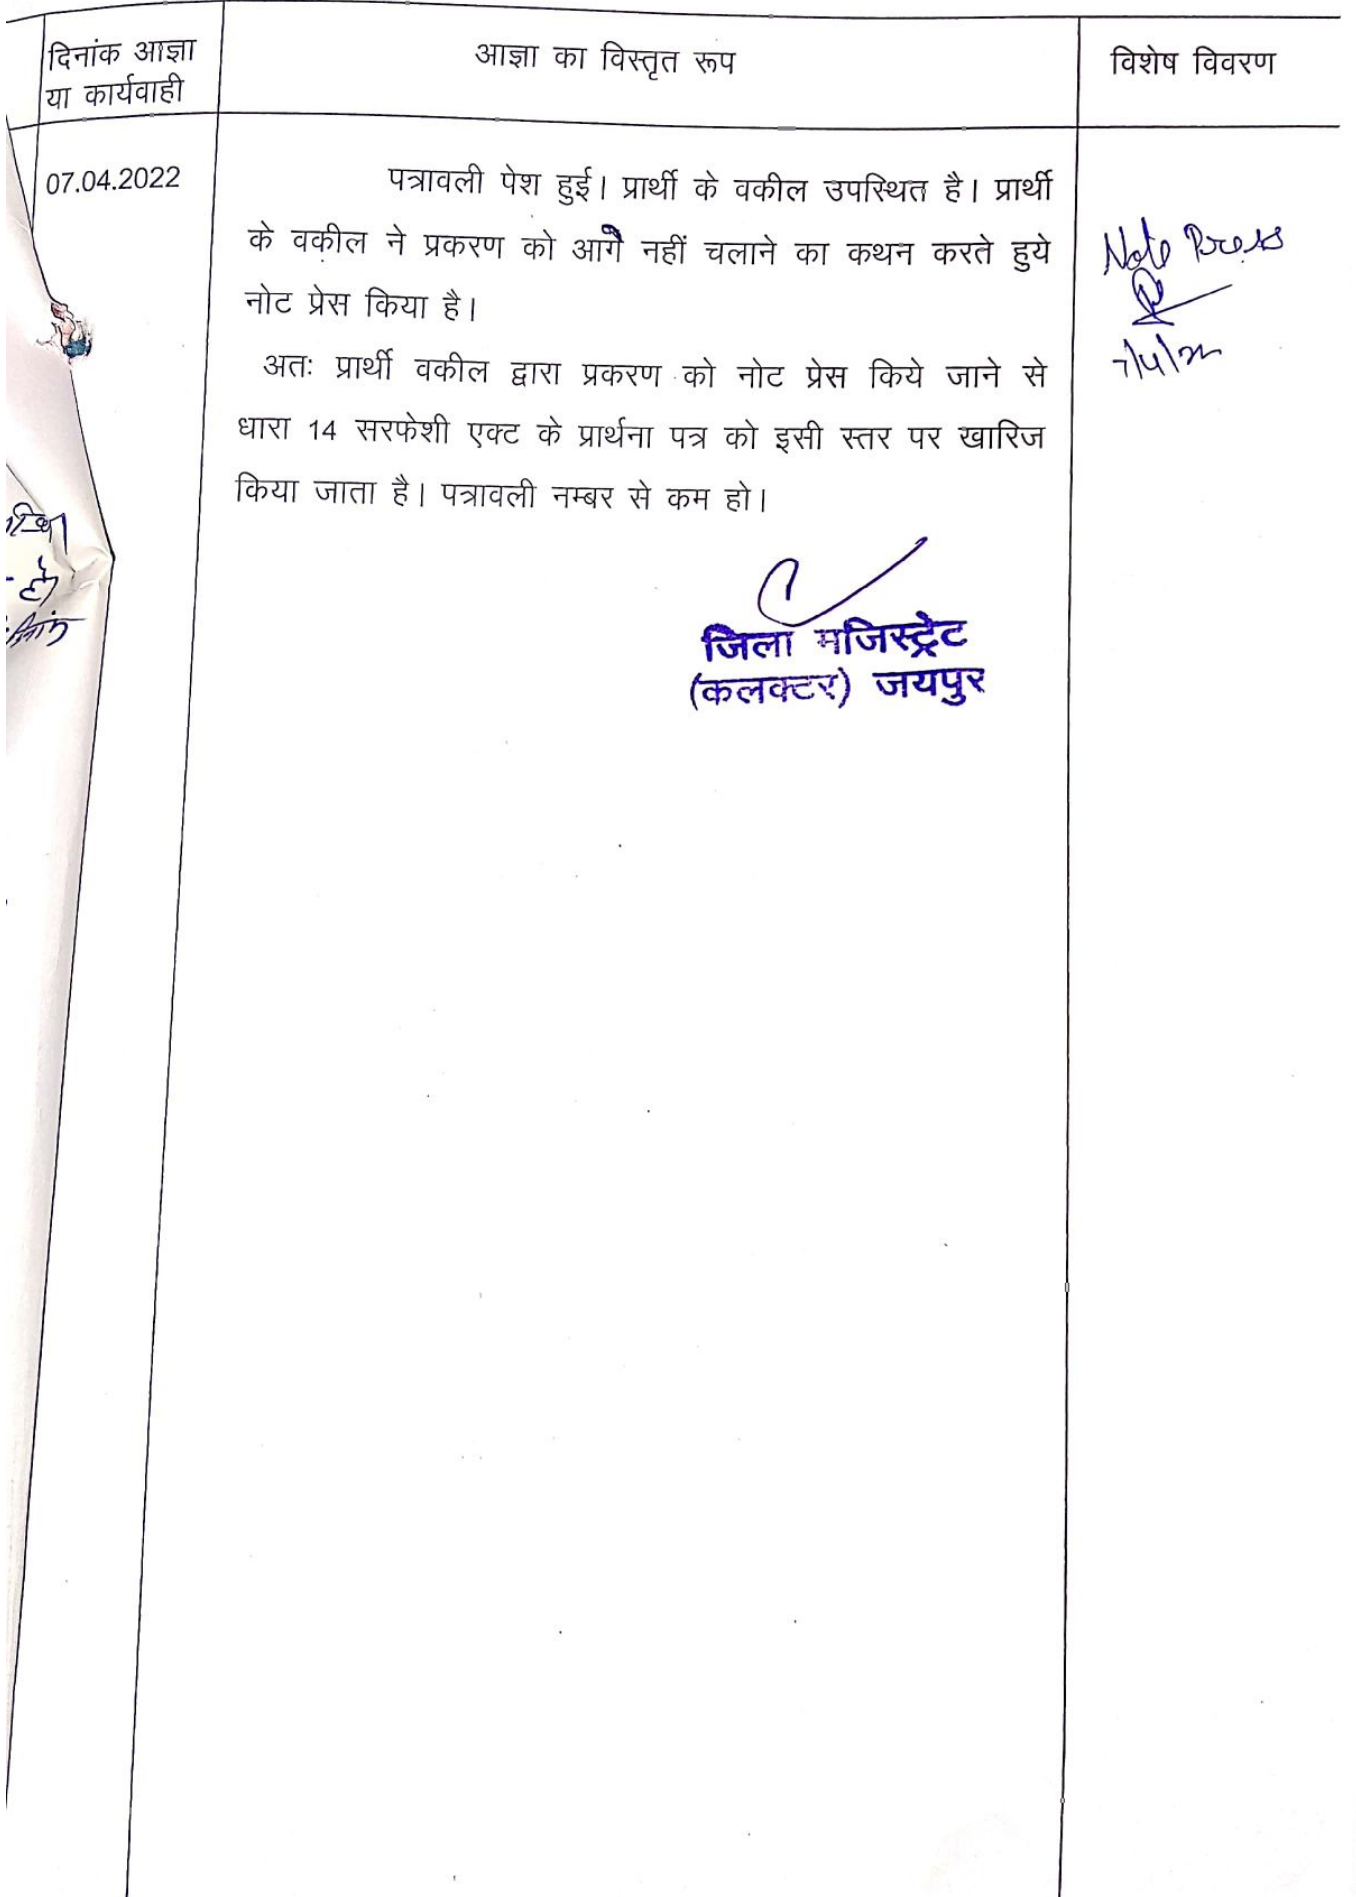 दिनांक आज्ञा
या कार्यवाही
आज्ञा का विस्तृत रूप
विशेष विवरण
07.04.2022
पत्रावली पेश हुई। प्रार्थी के वकील उपस्थित है। प्रार्थी
के वकील ने प्रकरण को आगे नहीं चलाने का कथन करते हुये
नोट प्रेस किया है।
अतः प्रार्थी वकील द्वारा प्रकरण को नोट प्रेस किये जाने से
धारा 14 सरफेशी एक्ट के प्रार्थना पत्र को इसी स्तर पर खारिज
किया जाता है। पत्रावली नम्बर से कम हो।
Note Press
7/4/22
जिला मजिस्ट्रेट
(कलक्टर) जयपुर